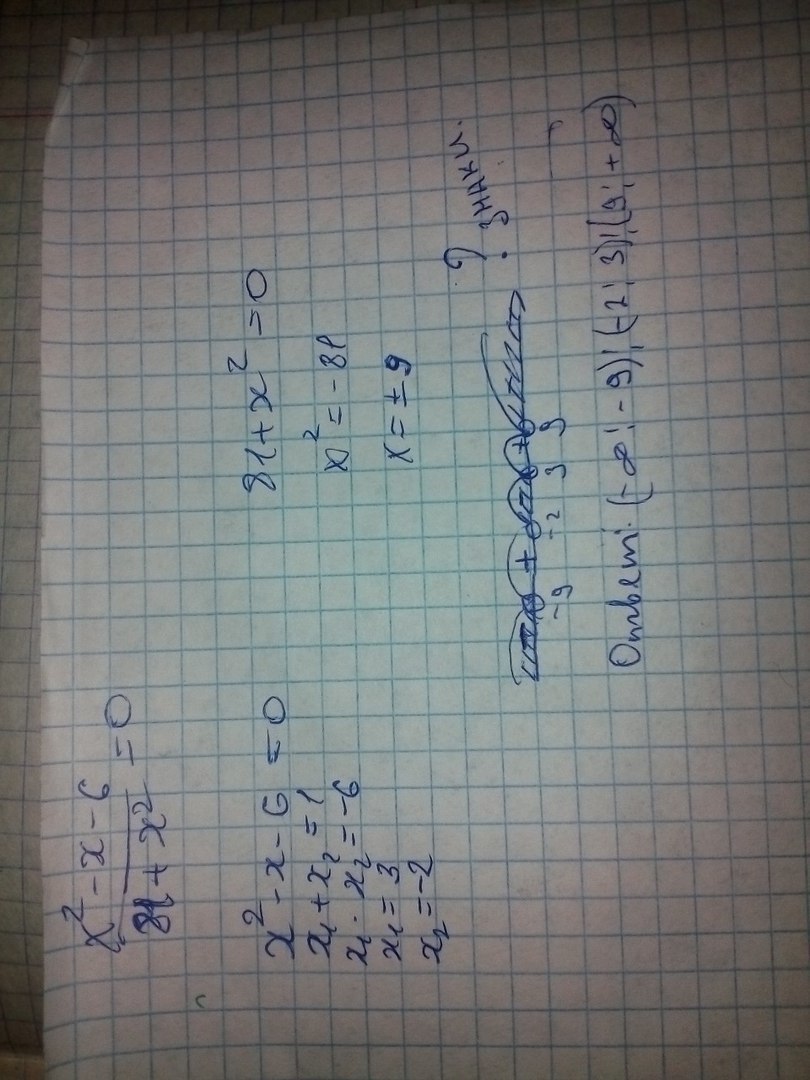 x² - x - 6
81 + x² = 0
x² - x - 6 = 0
x₁ + x₂ = 1
x₁ · x₂ = -6
x₁ = 3
x₂ = -2
81 + x² = 0
x² = -81
x = ± 9
? знаки.
-9 -2 3 9
Ответ: (-∞; -9); (-2; 3); (9; +∞)